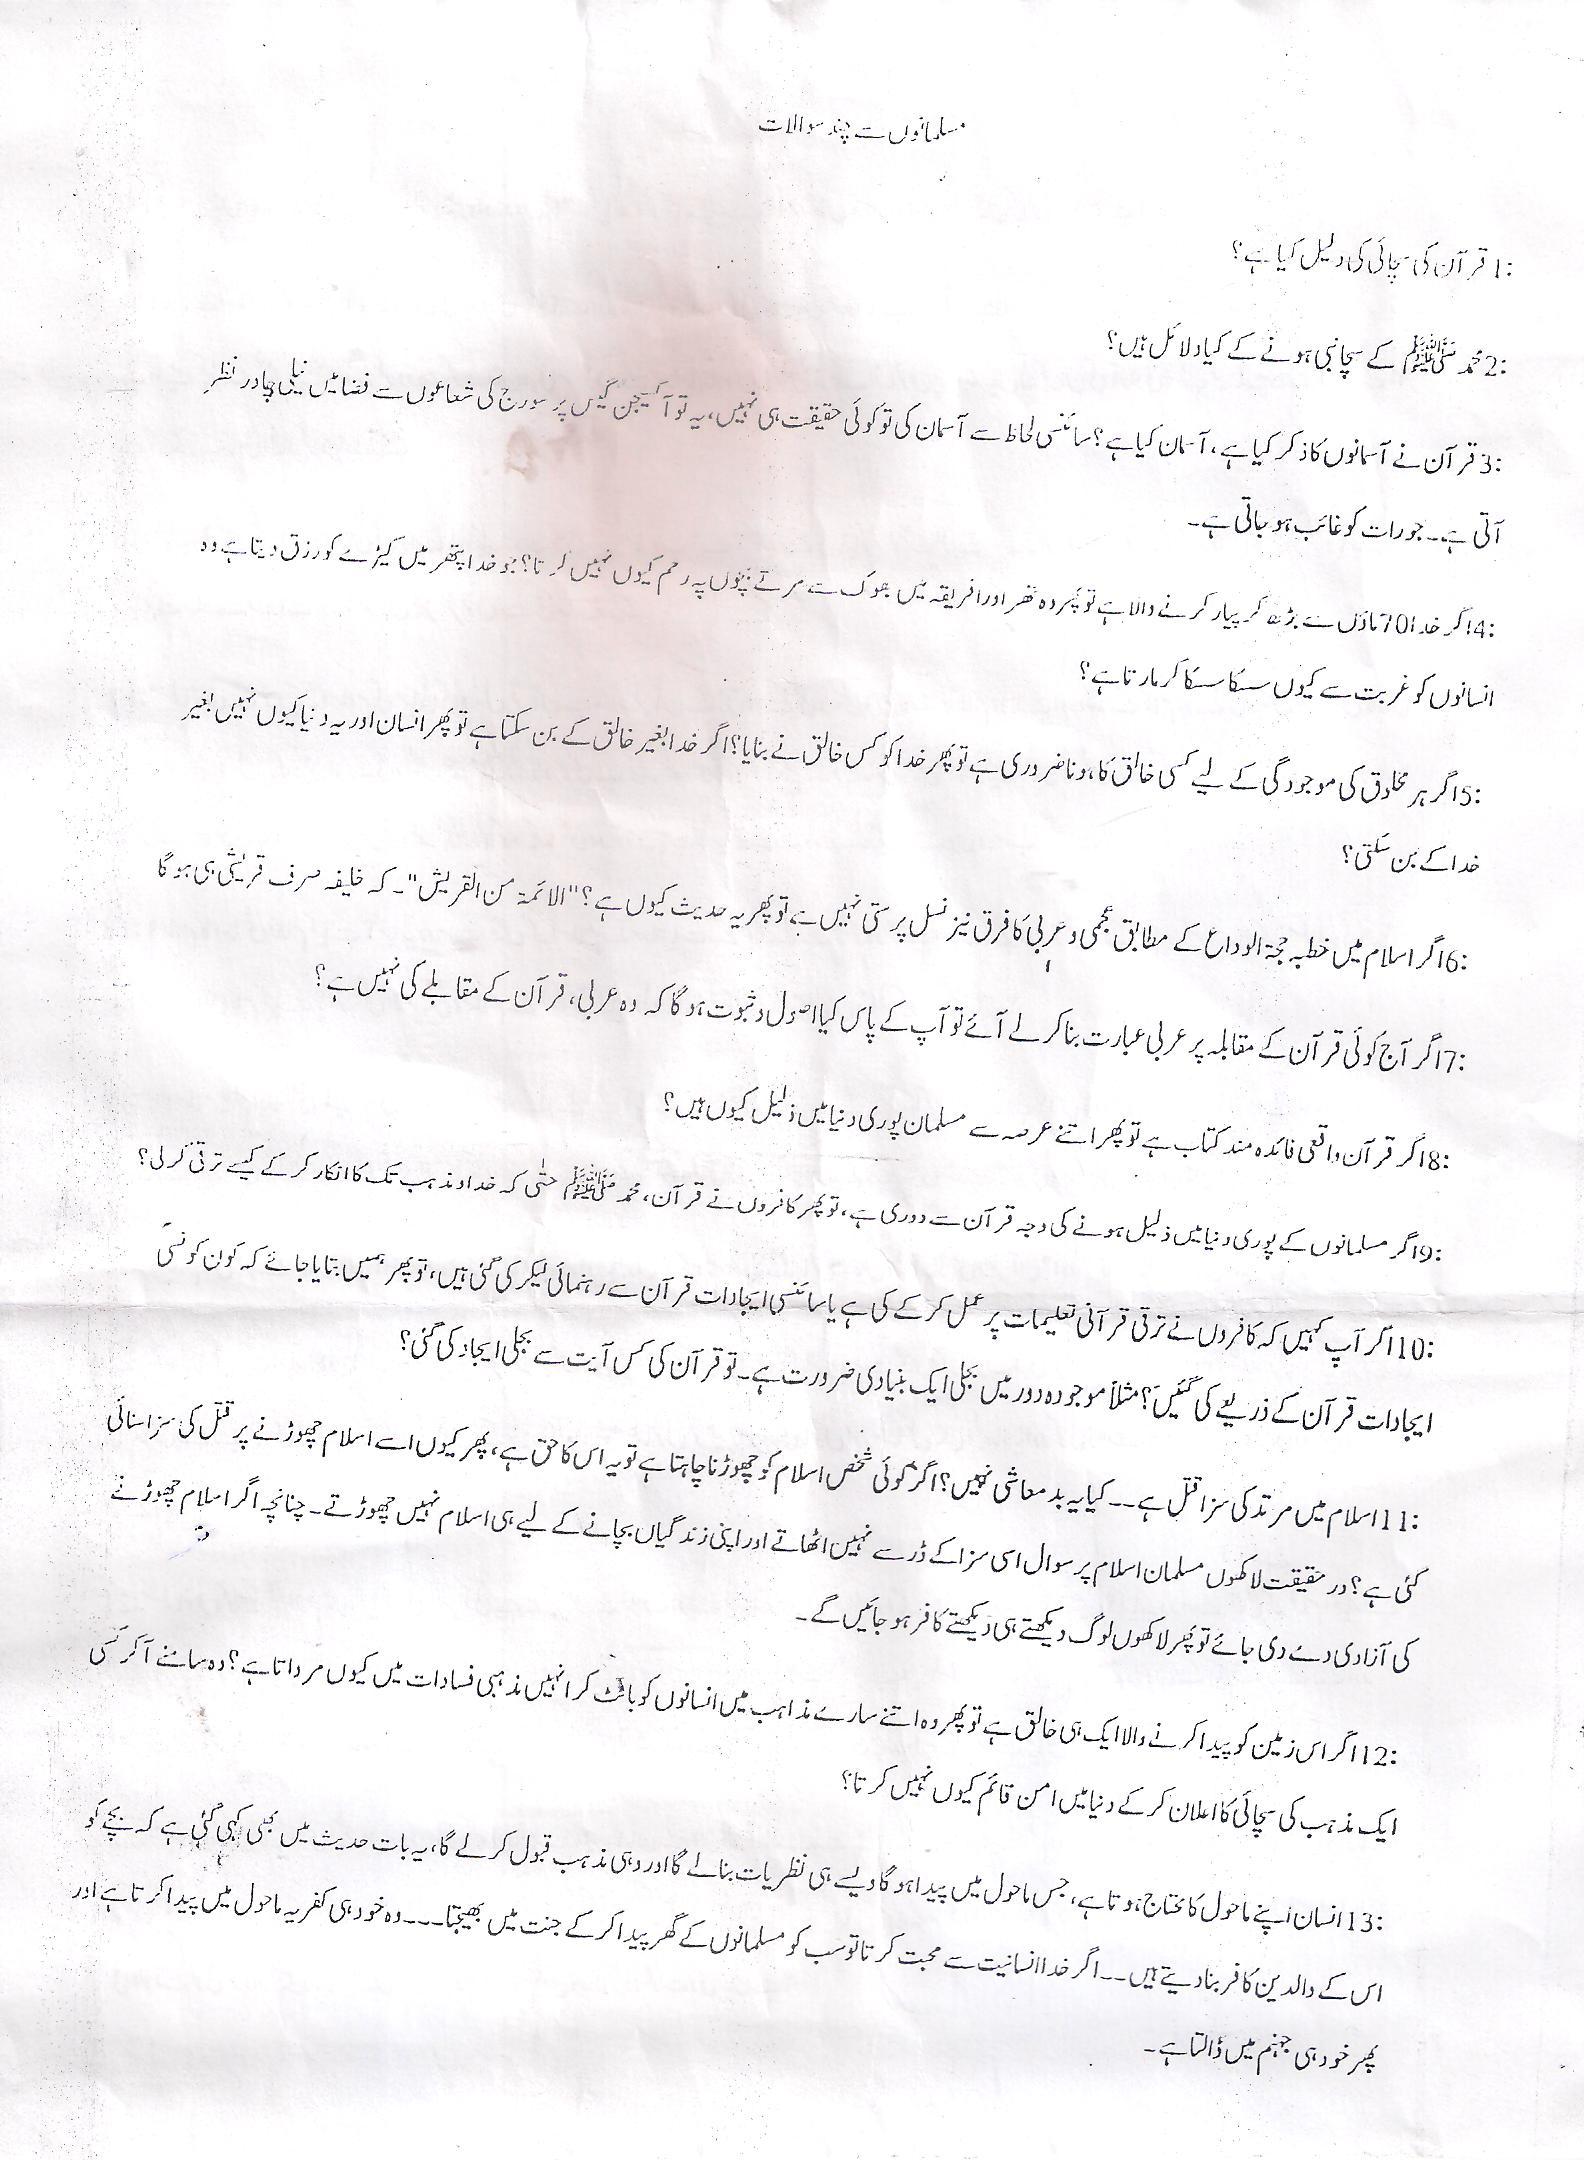 مسلمانوں سے چند سوالات
1: قرآن کی سچائی کی دلیل کیا ہے؟
2: محمد ﷺ کے سچا نبی ہونے کے کیا دلائل ہیں؟
3: قرآن نے آسمانوں کا ذکر کیا ہے، آسمان کیا ہے؟ سائنسی لحاظ سے آسمان کی تو کوئی حقیقت ہی نہیں، یہ تو آکسیجن گیس پر سورج کی شعاعوں سے فضا میں نیلی چادر نظر
آتی ہے۔ جو رات کو غائب ہو جاتی ہے۔
4: اگر خدا 70 ماؤں سے بڑھ کر پیار کرنے والا ہے تو پھر وہ تھر اور افریقہ میں بھوک سے مرتے بچوں پہ رحم کیوں نہیں کرتا؟ جو خدا پتھر میں کیڑے کو رزق دیتا ہے وہ
انسانوں کو غربت سے کیوں سسکا سسکا کر مارتا ہے؟
5: اگر ہر مخلوق کی موجودگی کے لیے کسی خالق کا ہونا ضروری ہے تو پھر خدا کو کس خالق نے بنایا؟ اگر خدا بغیر خالق کے بن سکتا ہے تو پھر انسان اور یہ دنیا کیوں نہیں بغیر
خدا کے بن سکتی؟
6: اگر اسلام میں خطبہ حجۃ الوداع کے مطابق عجمی و عربی کا فرق نیز نسل پرستی نہیں ہے تو پھر یہ حدیث کیوں ہے؟ "الائمۃ من القریش"۔ کہ خلیفہ صرف قریشی ہی ہو گا
7: اگر آج کوئی قرآن کے مقابلہ پر عربی عبارت بنا کر لے آئے تو آپ کے پاس کیا اصول و ثبوت ہو گا کہ وہ عربی، قرآن کے مقابلے کی نہیں ہے؟
8: اگر قرآن واقعی فائدہ مند کتاب ہے تو پھر اتنے عرصہ سے مسلمان پوری دنیا میں ذلیل کیوں ہیں؟
9: اگر مسلمانوں کے پوری دنیا میں ذلیل ہونے کی وجہ قرآن سے دوری ہے، تو پھر کافروں نے قرآن، محمد ﷺ حتٰی کہ خدا و مذہب تک کا انکار کر کے کیسے ترقی کر لی؟
10: اگر آپ کہیں کہ کافروں نے ترقی قرآنی تعلیمات پر عمل کر کے کی ہے یا سائنسی ایجادات قرآن سے رہنمائی لیکر کی گئی ہیں، تو پھر ہمیں بتایا جائے کہ کون کونسی
ایجادات قرآن کے ذریعے کی گئیں؟ مثلاً موجودہ دور میں بجلی ایک بنیادی ضرورت ہے۔ تو قرآن کی کس آیت سے بجلی ایجاد کی گئی؟
11: اسلام میں مرتد کی سزا قتل ہے۔۔ کیا یہ بدمعاشی نہیں؟ اگر کوئی شخص اسلام کو چھوڑنا چاہتا ہے تو یہ اس کا حق ہے، پھر کیوں اسے اسلام چھوڑنے پر قتل کی سزا سنائی
گئی ہے؟ در حقیقت لاکھوں مسلمان اسلام پر سوال اسی سزا کے ڈر سے نہیں اٹھاتے اور اپنی زندگیاں بچانے کے لیے ہی اسلام نہیں چھوڑتے۔ چنانچہ اگر اسلام چھوڑنے
کی آزادی دے دی جائے تو پھر لاکھوں لوگ دیکھتے ہی دیکھتے کافر ہو جائیں گے۔
12: اگر اس زمین کو پیدا کرنے والا ایک ہی خالق ہے تو پھر وہ اتنے سارے مذاہب میں انسانوں کو بانٹ کر انہیں مذہبی فسادات میں کیوں مرواتا ہے؟ وہ سامنے آ کر کسی
ایک مذہب کی سچائی کا اعلان کر کے دنیا میں امن قائم کیوں نہیں کرتا؟
13: انسان اپنے ماحول کا محتاج ہوتا ہے، جس ماحول میں پیدا ہو گا ویسے ہی نظریات بنا لے گا اور وہی مذہب قبول کر لے گا، یہ بات حدیث میں بھی کہی گئی ہے کہ بچے کو
اس کے والدین کافر بنا دیتے ہیں۔۔ اگر خدا انسانیت سے محبت کرتا تو سب کو مسلمانوں کے گھر پیدا کر کے جنت میں بھیجتا۔۔۔ وہ خود ہی کفریہ ماحول میں پیدا کرتا ہے اور
پھر خود ہی جہنم میں ڈالتا ہے۔